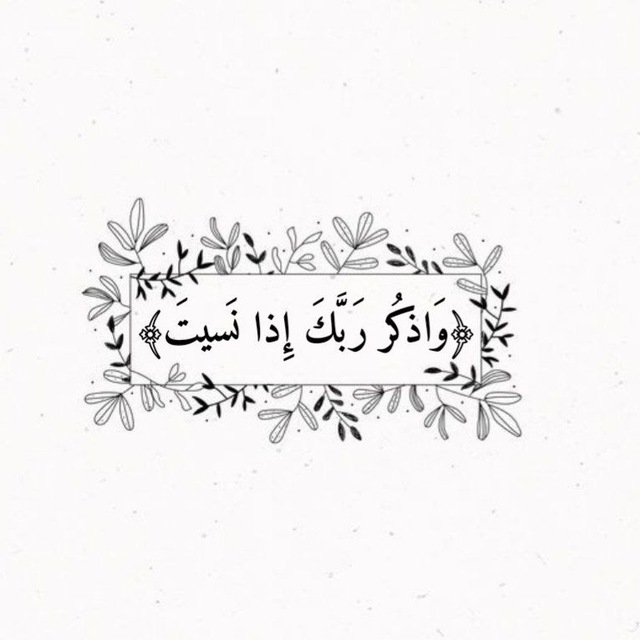 ﴿وَاذكُر رَبَّكَ إِذا نَسيتَ﴾